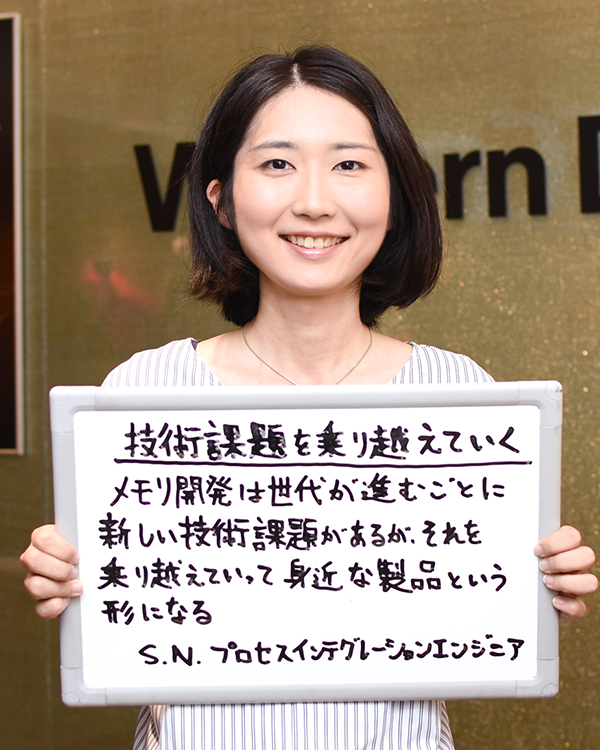 W ern D
技術課題を乗り越えていく
メモリ開発は世代が進むごとに
新しい技術課題があるが、それを
乗り越えていって身近な製品という
形になる
S.N. プロセスインテグレーションエンジニア